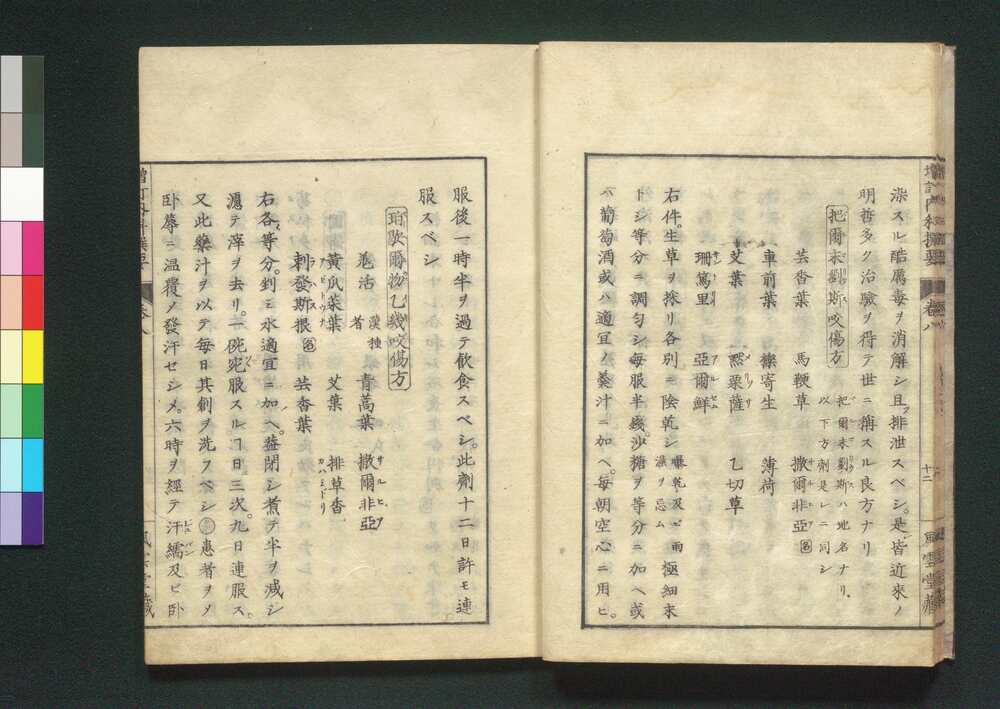 染スル酷厲毒ヲ消解シ且排泄スベシ。是皆近來ノ
明哲多ク治驗ヲ得テ世ニ稱スル良方ナリ
把爾末劉斯咬傷方 把爾末劉斯ハ地名ナリ、
以下方劑是レニ同シ
芸香葉 馬鞭草 撒爾非亞
車前葉 檞寄生 薄荷
艾葉 熈栗薩 乙切草
珊篤里 亞爾鮮
右件。生草ヲ採リ各別ニ陰乾シ 曝乾及ビ雨濕ヲ忌ム 極細末
トシ等分ニ調匀シ毎服半錢沙糖ヲ等分ニ加ヘ或
ハ葡萄酒或ハ適宜ノ羹汁ニ加ヘ。毎朝空心ニ用ヒ。
増訂内科撰要 卷八 十二 風雲堂藏
服後一時半ヲ過テ飲食スベシ。此劑十二日許モ連
服スベシ
珀歇爾物乙幾咬傷方
卷活 漢種者 青蒿葉 撒爾非亞
黃瓜菜葉 艾葉 排草香
刺發斯根 芸香葉
右各等分。剉ミ水適宜ニ加ヘ。蓋閉シ煮テ半ヲ減シ
漉テ滓ヲ去リ。一碗宛服スルコ日三次。九日連服ス。
又此藥汁ヲ以テ毎日其創ヲ洗フベシ 患者ヲメ
臥蓐ニ温覆メ發汗セシメ。六時ヲ經テ汗繻及ビ臥